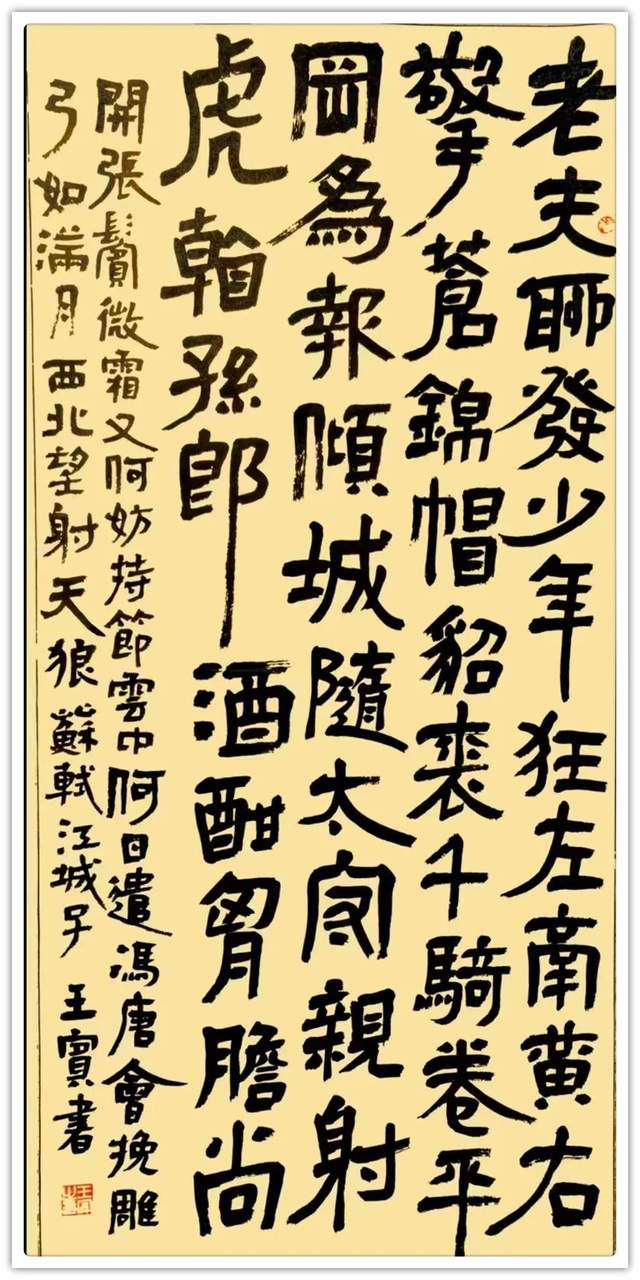 老夫聊發少年狂左牽黄右
擎蒼錦帽貂裘千騎卷平
岡為報傾城隨太守親射
虎看孫郎酒酣胷膽尚
開張鬢微霜又何妨持節雲中何日遣馮唐會挽雕
弓如滿月西北望射天狼蘇軾江城子 王賓書